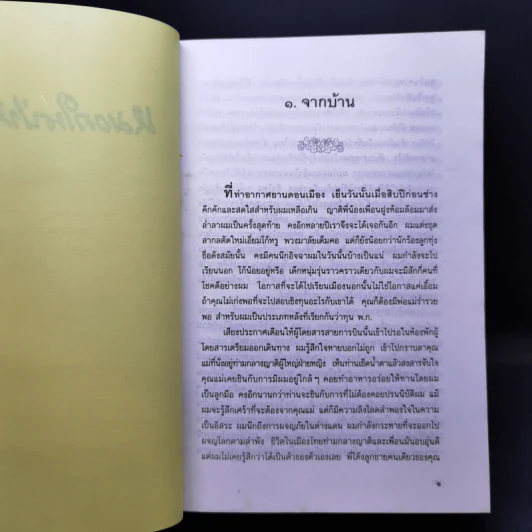 ๑. จากบ้าน
ที่ท่าอากาศยานดอนเมือง เย็นวันนั้นเมื่อสิบปีก่อนช่าง
คึกคักและสดใสสำหรับผมเหลือเกิน ญาติพี่น้องเพื่อนฝูงห้อมล้อมมาส่ง
ล่ำลาผมเป็นครั้งสุดท้าย คงอีกหลายปีเราจึงจะได้เจอกันอีก ผมแต่งชุด
สากลตัดใหม่เอี่ยมโก้หรู พวงมาลัยเต็มคอ แต่ก็ยังน้อยกว่านักร้องลูกทุ่ง
ชื่อดังสมัยนั้น คงมีคนนึกอิจฉาผมในวันนั้นบ้างเป็นแน่ ผมกำลังจะไป
เรียนนอก โก้น้อยอยู่หรือ เด็กหนุ่มรุ่นราวคราวเดียวกับผมจะมีสักกี่คนที่
โชคดีอย่างผม โอกาสที่จะได้ไปเรียนเมืองนอกนั้นไม่ใช่โอกาสแค่เอื้อม
ถ้าคุณไม่เก่งพอที่จะไปสอบชิงทุนอะไรกับเขาได้ คุณก็ต้องมีพ่อแม่ร่ำรวย
พอ สำหรับผมเป็นประเภทหลังที่เรียกกันว่าทุน พ.ก.
เสียงประกาศเตือนให้ผู้โดยสารสายการบินนั้นเข้าไปรอในห้องพักผู้
โดยสารเตรียมออกเดินทาง ผมรู้สึกใจหายบอกไม่ถูก เข้าไปกราบลาคุณ
แม่ที่นั่งอยู่ท่ามกลางญาติผู้ใหญ่ฝ่ายหญิง เห็นท่านเช็ดน้ำตาแล้วสงสารจับใจ
คุณแม่เคยชินกับการมีผมอยู่ใกล้ๆ คอยทำอาหารอร่อยให้ทานโดยผม
เป็นลูกมือ คงอีกนานกว่าท่านจะชินกับการที่ไม่ต้องคอยปรนนิบัติผม แม้
ผมจะรู้สึกเศร้าที่จะต้องจากคุณแม่ แต่ก็มีความลิงโลดลำพองใจในความ
เป็นอิสระ ผมนึกถึงการผจญภัยในต่างแดน ผมกำลังกระหายที่จะออกไป
ผจญโลกตามลำพัง ชีวิตในเมืองไทยท่ามกลางญาติและเพื่อนมันอบอุ่นดี
แต่ผมไม่เคยรู้สึกว่าได้เป็นตัวของตัวเองเลย พี่โด่งลูกชายคนเดียวของคุณ
๑